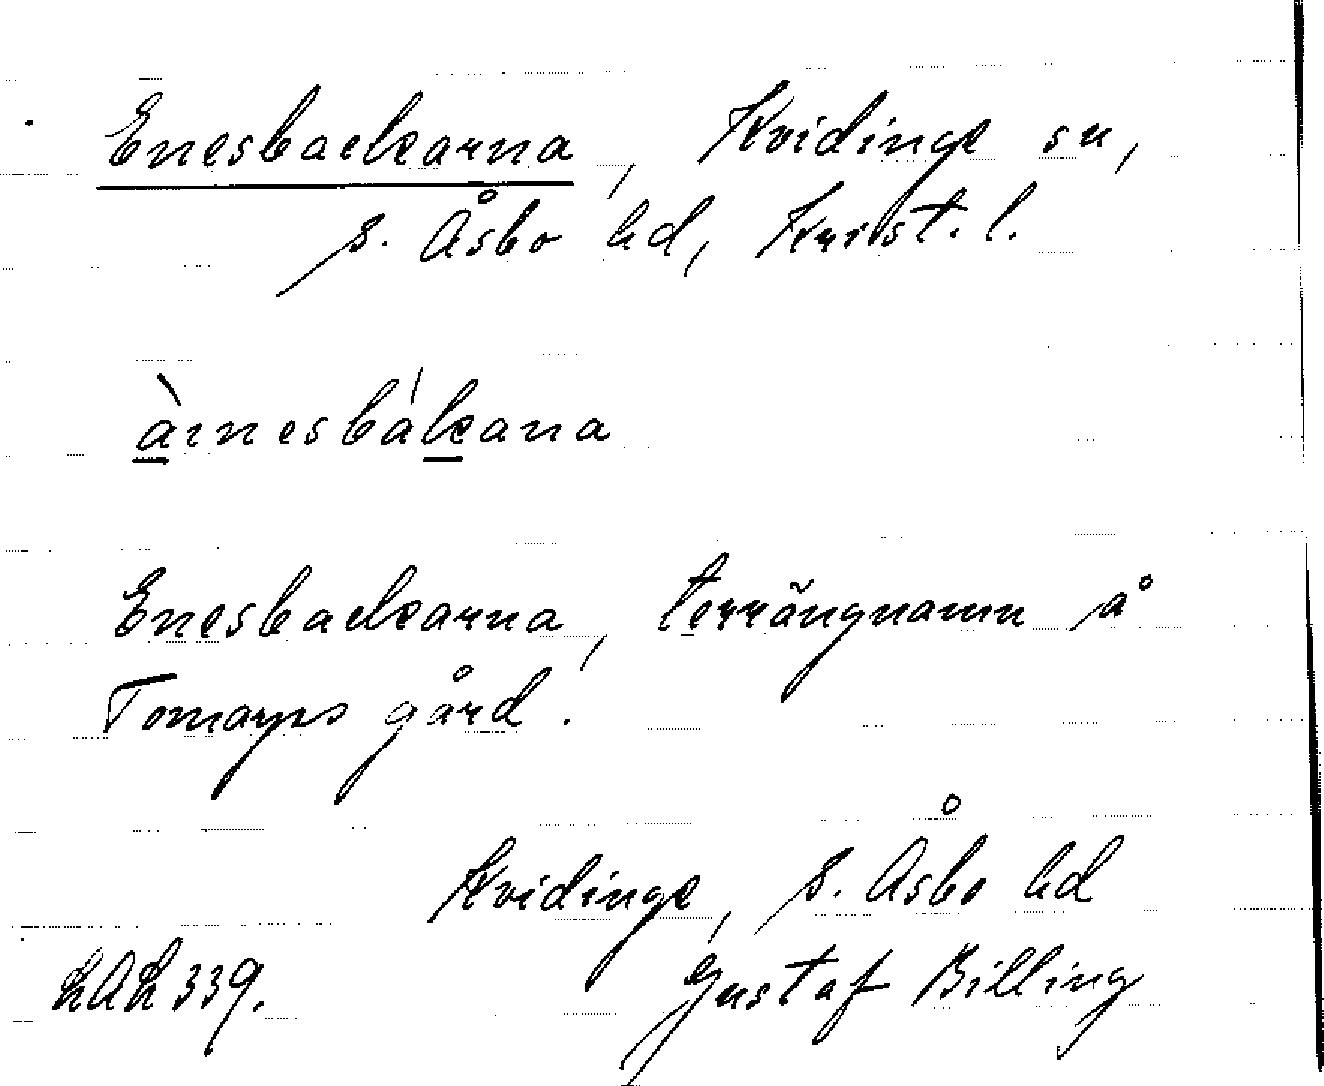 Enesbackarna, Kvidinge sn,
S. Åsbo hd, Krist. l.
àınesbákana
Enesbackarna, terrängnamn å
Tomarps gård.
Kvidinge, S. Åsbo hd
Gustaf Billing